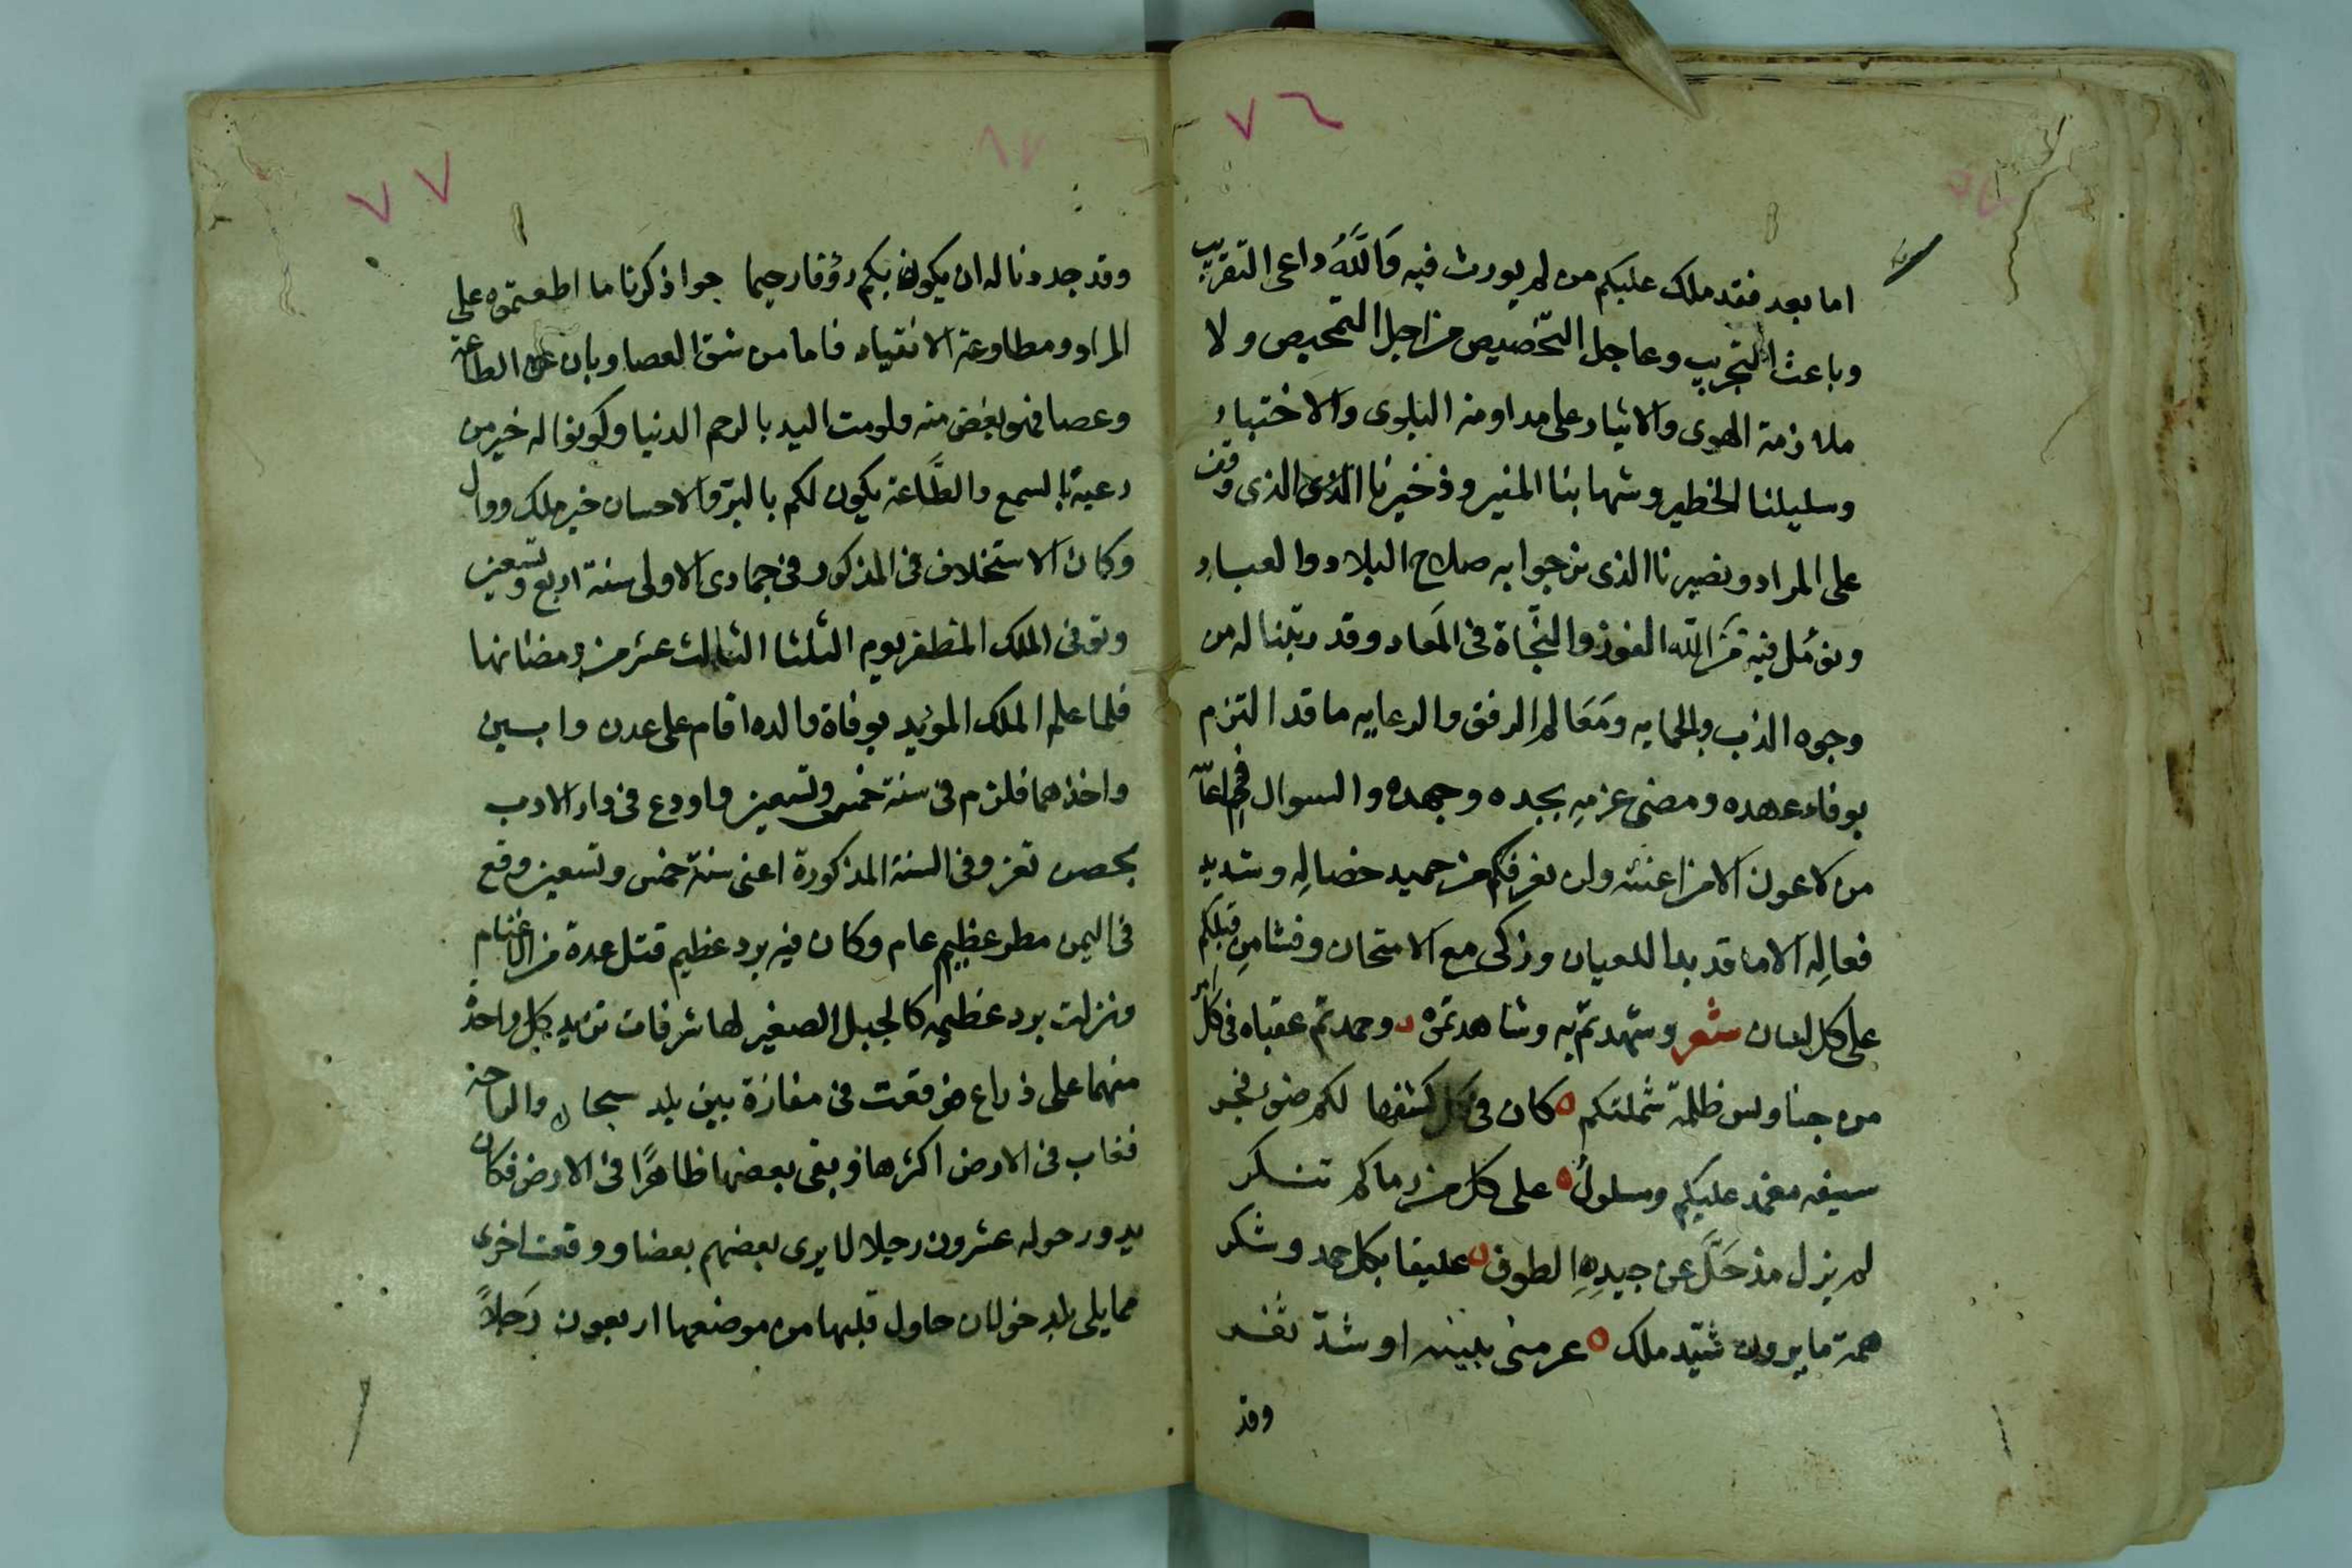 ٧٦
اما بعد فقد ملك عليكم من لم يورث فيه وَاللَّهُ داعى التقريب
وباعث التجريب وعاجل التخصيص من اجل التمحيص ولا
ملازمة الهوى والايثار على مداومة البلوى والاختبار
وسليلنا الخطير وشهابنا المنير وذخيرنا الذى الذى وقف
على المراد ونصيرنا الذى نرجوا به صلاح البلاد والعباد
ونؤمل فيه من الله الفوز والنجاة فى المعاد وقد رتبنا له من
وجوه الذب والحمايه ومعالم الرفق والرعايه ما قد التزم
بوفاء عهده ومضى عزمه بجده وجهده والسوال فى اعانه
من لا عون الا من اعنته ولن نعرفكم من حميد خصاله وسديد
فعاله الا ما قد بدا للعيان وزكى مع الامتحان وفشا من قبلكم
على كل لسان شعر وشهدتم به وشاهدتموه وحمدتم عقباه فى كل امر
من جنا ولس ظلمة شملتكم كان فى كل كشفها لكم ضوء فجر
سيفه مغمد عليكم ومسلول على كل من زماكم تنكر
لم يزل مذ حَلَّ عن جيده الطوق عليفا بكل حمد وشكر
همة ما يرون شيد ملك عرمنى ببينه او شد ثغر
وقد
٧٧
وقد حددنا له ان يكون بكم رؤفا رحيما جوا ذكرنا ما اطعتموه على
المراد ومطاوعة الانقياد فاما من شق العصا وبان عن الطاعة
وعصا فهو يغض منه ولومت اليد بالرحم الدنيا وكونوا له خير من
رعية بالسمع والطاعة يكون لكم بالبر والاحسان خير ملك ووال
وكان الاستخلاف فى المذكور فى جمادى الاولى سنة اربع وتسعين
وتوفى الملك المظفر يوم الثلثا الثالث عشر من رمضانها
فلما علم الملك المويد بوفاة والده اقام على عدن وابين
واخذهما فلزم فى سنة خمس وتسعين واودع فى دار الادب
بحصن تعز وفى السنة المذكورة اعنى سنة خمس وتسعين وقع
فى اليمن مطر عظيم عام وكان فيه برد عظيم قتل عدة من الاغنام
ونزلت برد عظيمه كالجبل الصغير لها شرفات تزيد كل واحدة
منهما على ذراع فوقعت فى مفازة بين بلد سنحان والراحة
فغاب فى الارض اكثرها وبقى بعضها ظاهرًا فى الارض فكان
يدور حوله عشرون رجلا لا يرى بعضهم بعضا ووقعت اخرى
مما يلى بلد خولان حاول قلبها من موضعها اربعون رَجلاً